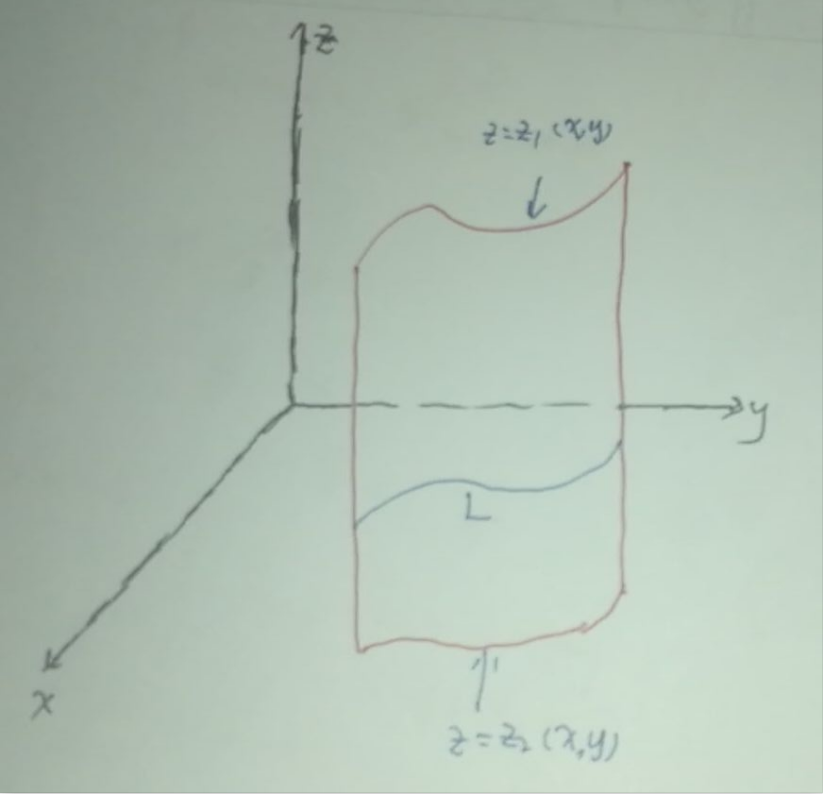 z
z=z₁(x,y)
y
L
x
z=z₂(x,y)